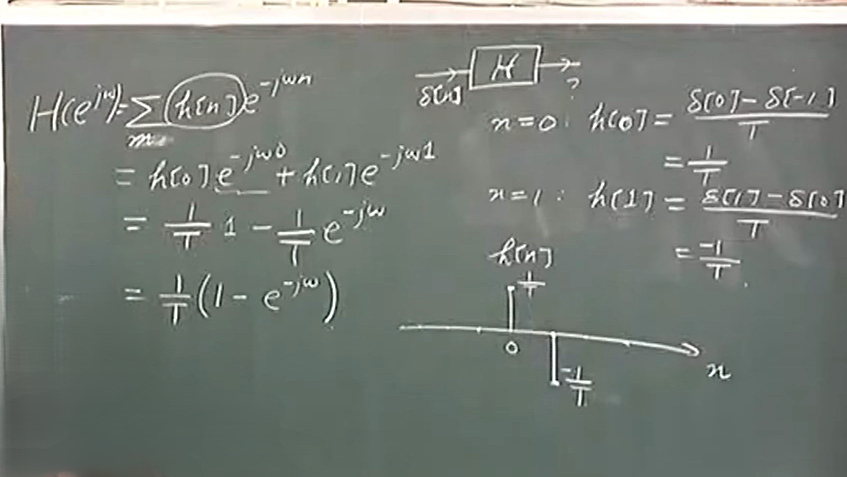 H(e^{jω}) = ∑_n h[n] e^{-jωn}
= h[0] e^{-jω0} + h[1] e^{-jω1}
= 1/T 1 - 1/T e^{-jω}
= 1/T (1 - e^{-jω})
δ[n] H ?
n=0 : h[0] = δ[0] - δ[-1] / T
= 1/T
n=1 : h[1] = δ[1] - δ[0] / T
= -1/T
h[n]
1/T
0
-1/T
n